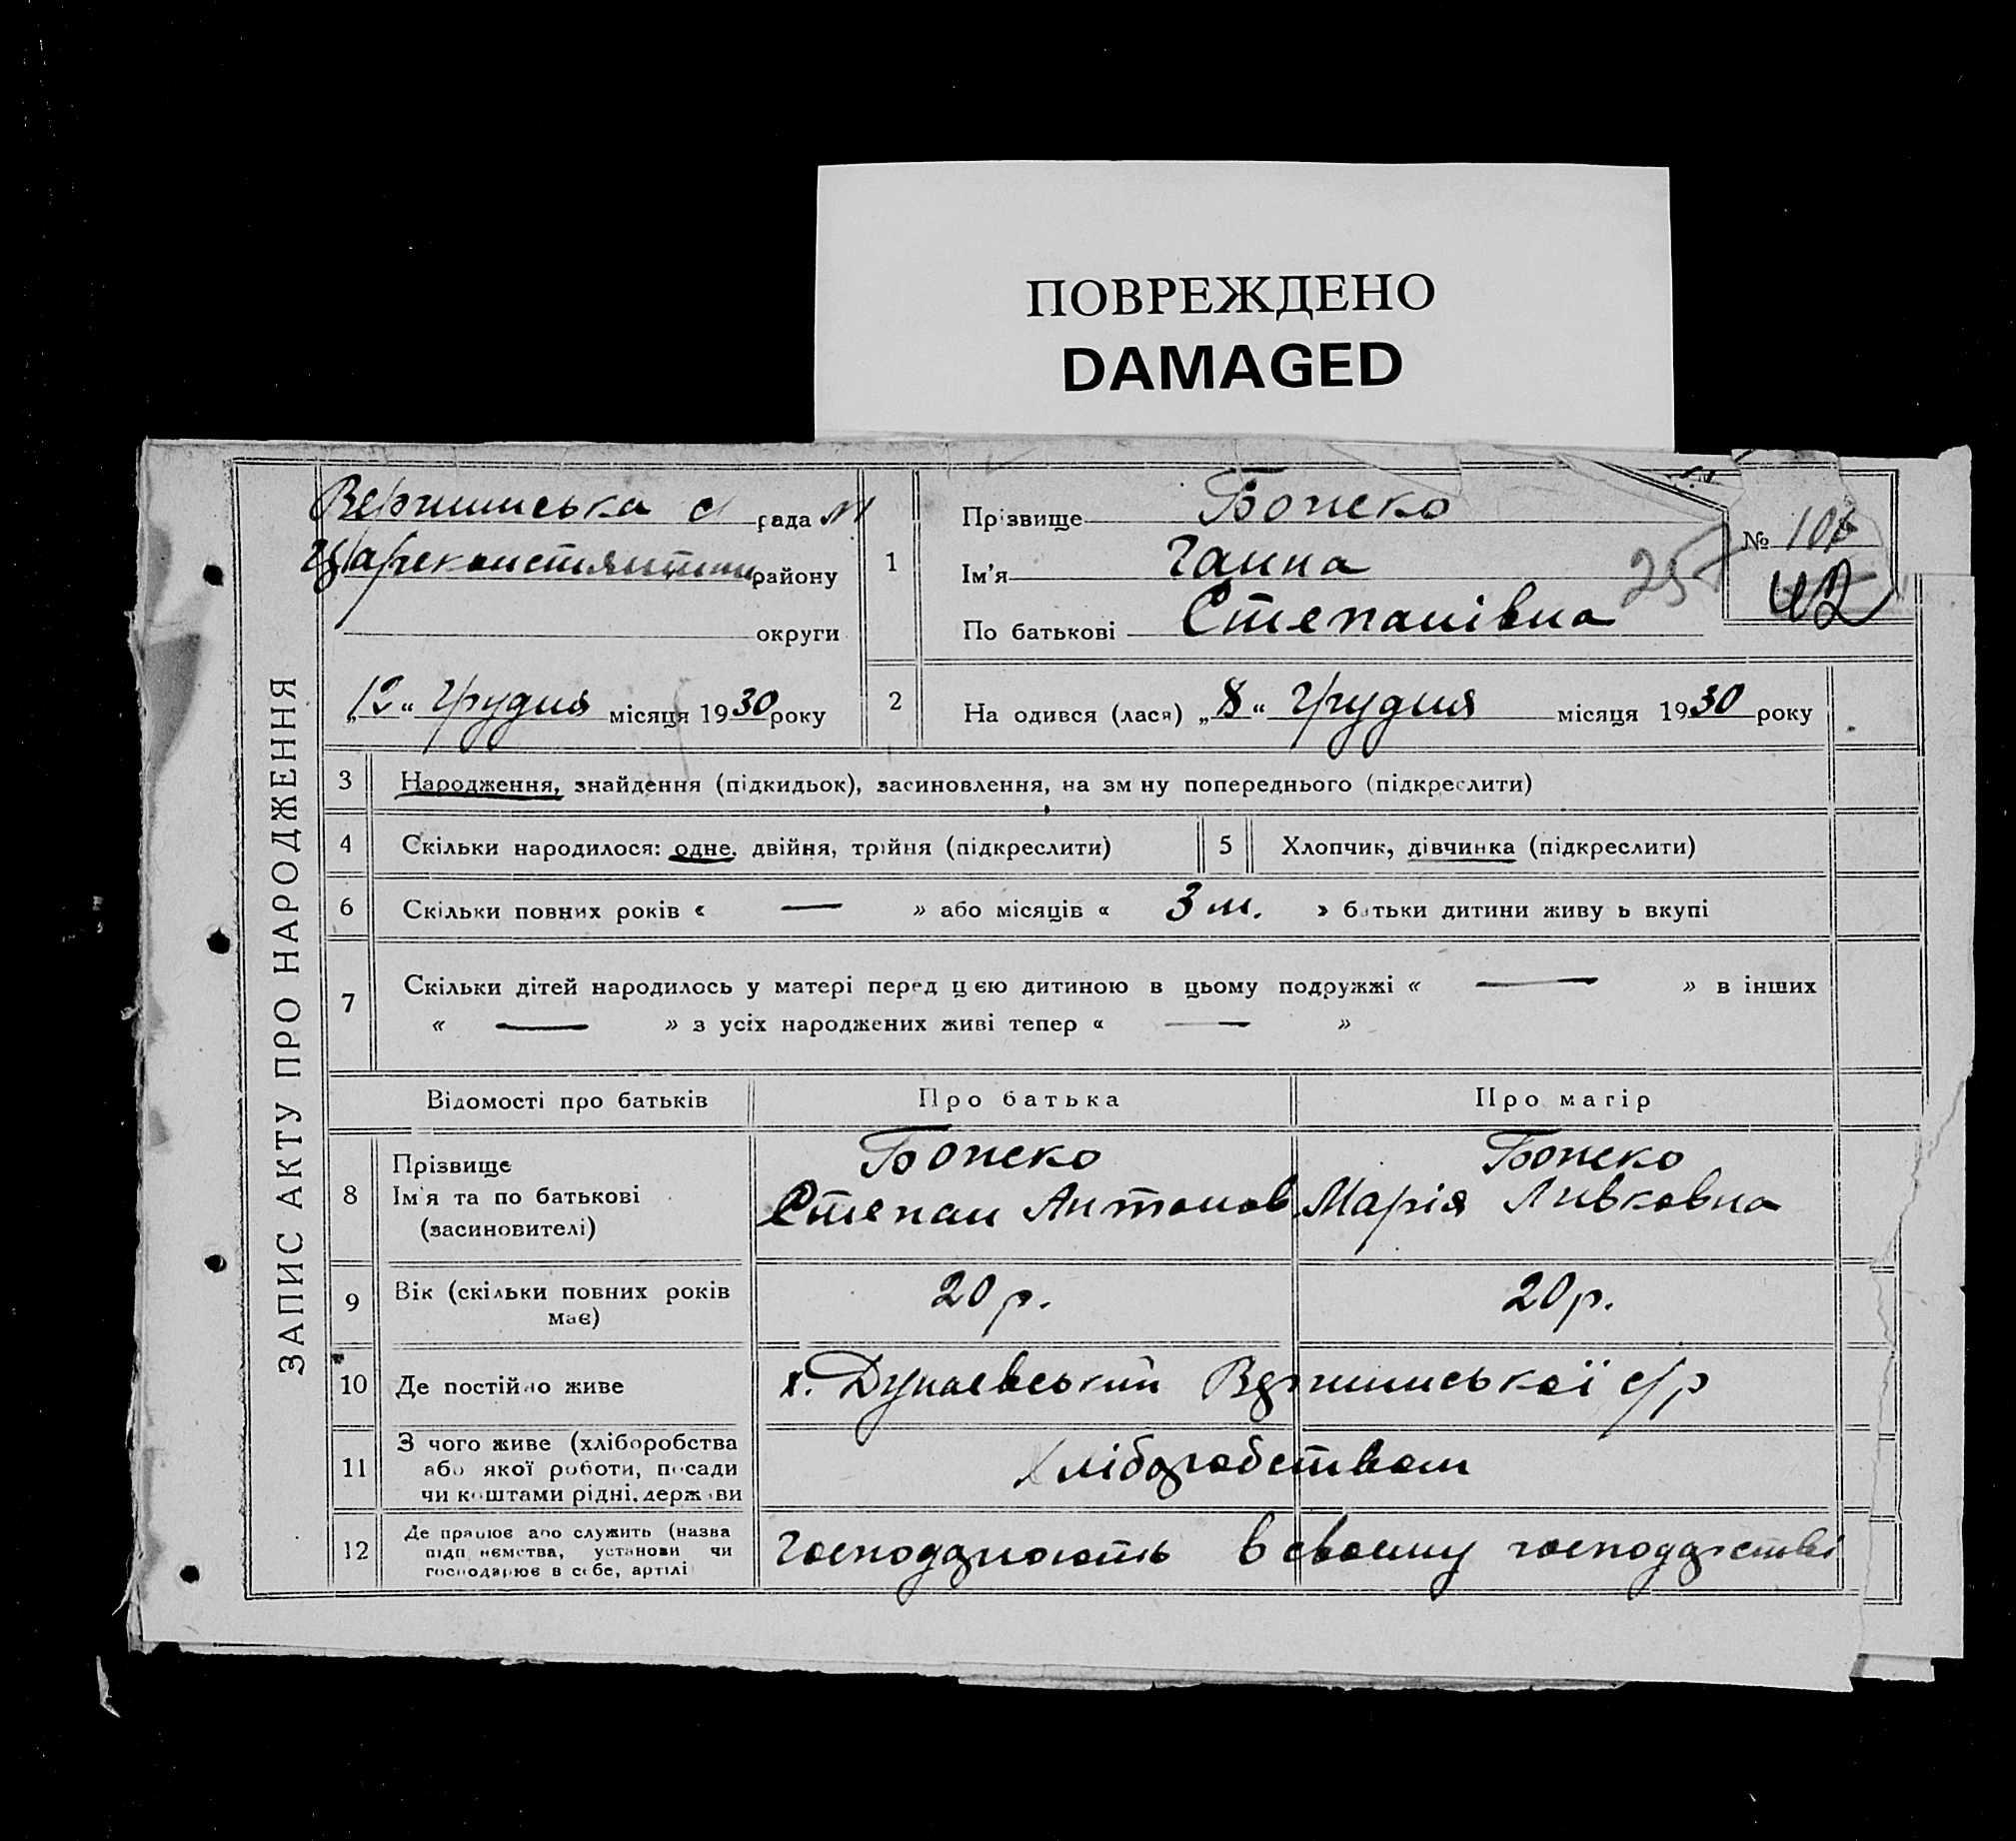 ПОВРЕЖДЕНО
DAMAGED
ЗАПИС АКТУ ПРО НАРОДЖЕННЯ
Вершинська с рада
Цареконстянтин району
округи
„12“ Грудня місяця 1930 року
1
Прізвище Божко
Ім'я Ганна
По батькові Степанівна
257
№ 107
42
2
На одився (лася) „8“ Грудня місяця 1930 року
3
Народження, знайдення (підкидьок), засиновлення, на зм ну попереднього (підкреслити)
4
Скільки народилося: одне, двійня, трійня (підкреслити)
5
Хлопчик, дівчинка (підкреслити)
6
Скільки повних років « — » або місяців « 3 м. » батьки дитини живу ь вкупі
7
Скільки дітей народилось у матері перед цією дитиною в цьому подружжі « — » в інших
« — » з усіх народжених живі тепер « — »
Відомості про батьків
Про батька
Про матір
8
Прізвище
Ім'я та по батькові
(засиновителі)
Божко
Степан Антонов.
Божко
Марія Левковна
9
Вік (скільки повних років
має)
20 р.
20 р.
10
Де постійно живе
х. Дунаевський Вершинської с/р
11
З чого живе (хліборобства
або якої роботи, посади
чи коштами рідні, держави
Хліборобством
12
Де працює або служить (назва
підп иємства, установи чи
господарює в себе, артілі
Господарюють в своему господарстві